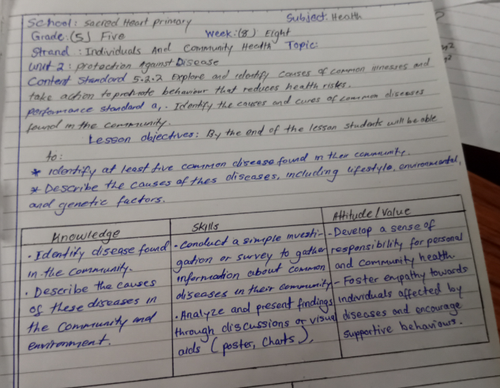 School: Sacred Heart primary Subject: Health
Grade: (5) Five Week: (8) Eight
Strand: Individuals And Community Health Topic:
Unit 2: protection Against Disease
Content Standard 5.2.2 Explore and identify causes of common illnesses and
take action to behavior that reduces health risks.
performance standard a, - Identify the causes and cures of common diseases
found in the community.
Lesson objectives: By the end of the lesson students will be able
to:
* Identify at least five common disease found in their community.
* Describe the causes of thes diseases, including lifestyle, environmental,
and genetic factors.
Knowledge
· Identify disease found
in the community.
· Describe the causes
of these diseases in
the community and
environment.
Skills
· Conduct a simple investi-
gation or survey to gather
information about common
diseases in their community
· Analyze and present findings
through discussions or visual
aids (poster, charts).
Attitude/Value
- Develop a sense of
responsibility for personal
and community health
- Foster empathy towards
individuals affected by
diseases and encourage
supportive behaviours.